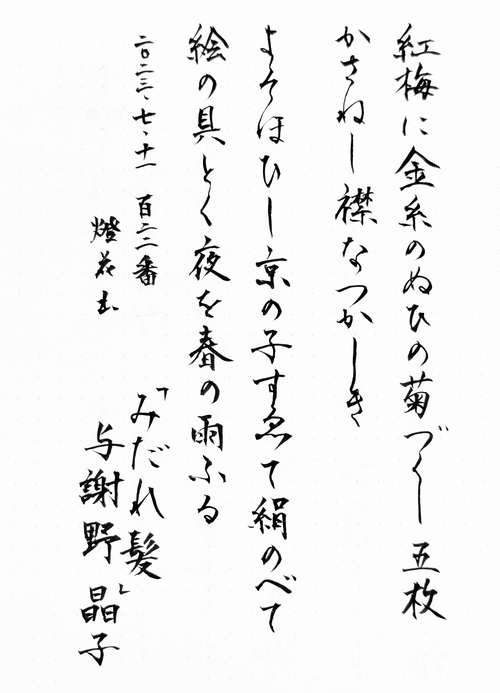 紅梅に金糸のぬひの菊づくし五枚
かさねし襟なつかしき
よそほひし京の子すゑて絹のべて
絵の具とく夜を春の雨ふる
二〇二三、七、十一 百二二番
燈花书
「みだれ髪」
与謝野晶子